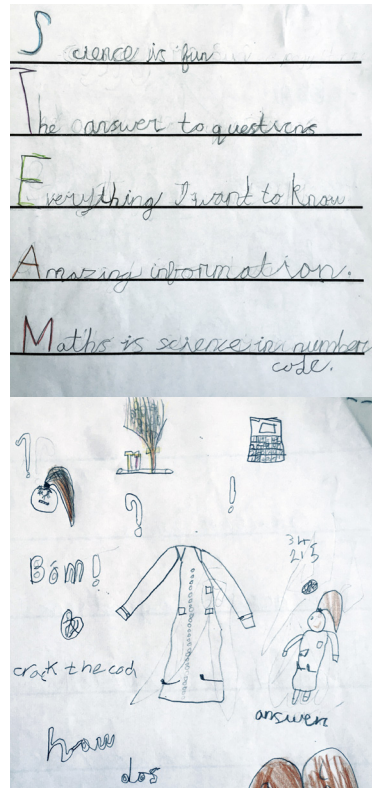 Science is fun
The answer to questions
Everything I want to know
Amazing information.
Maths is science in number
code.
?
!
?
Bom!
crack the cod
answer
how
dos